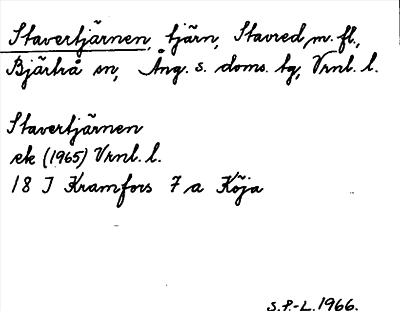 Stavertjärnen, tjärn, Stavred m. fl.,
Bjärtrå sn, Ång. s. doms. tg, Vrnl. l.
Stavertjärnen
ek (1965) Vrnl. l.
18 I Kramfors 7 a Köja
S.P.-L. 1966.